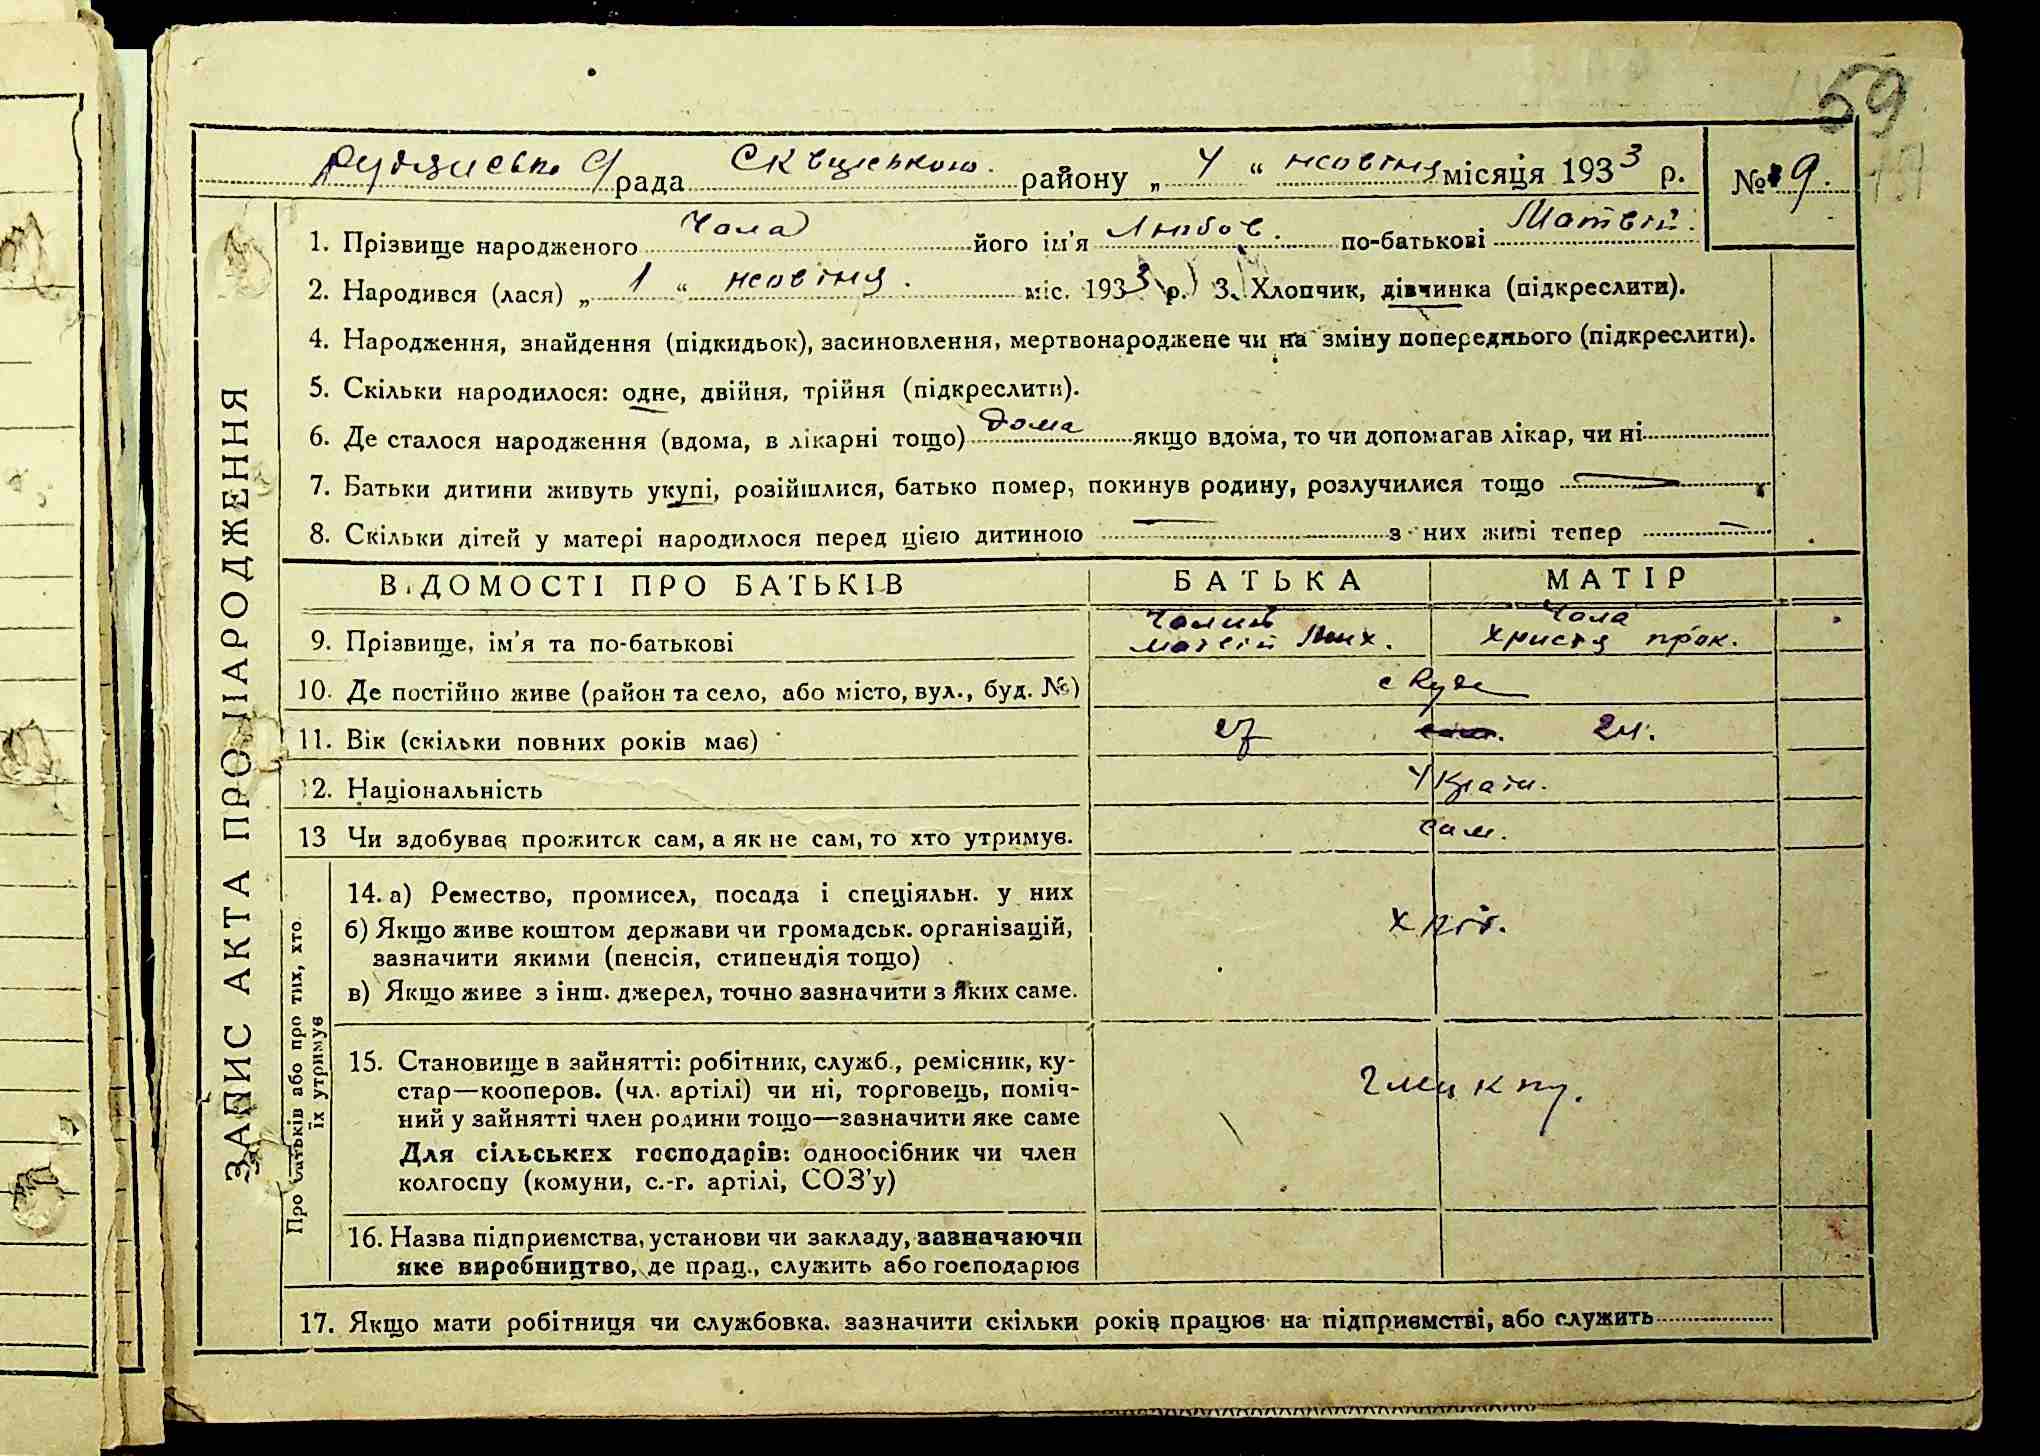 59
рада Сквирського району „ 4 “ жовтня місяця 1933 р. № 9.
1. Прізвище народженого Чала його ім'я Любов. по-батькові Матвій.
2. Народився (лася) „ 1 “ жовтня. міс. 1933 р. 3. Хлопчик, дівчинка (підкреслити).
4. Народження, знайдення (підкидьок), засиновлення, мертвонароджене чи на зміну попереднього (підкреслити).
5. Скільки народилося: одне, двійня, трійня (підкреслити).
6. Де сталося народження (вдома, в лікарні тощо) дома якщо вдома, то чи допомагав лікар, чи ні
7. Батьки дитини живуть укупі, розійшлися, батько помер, покинув родину, розлучилися тощо —
8. Скільки дітей у матері народилося перед цією дитиною — з них живі тепер —
ЗАПИС АКТА ПРО НАРОДЖЕННЯ
ВІДОМОСТІ ПРО БАТЬКІВ БАТЬКА МАТІР
9. Прізвище, ім'я та по-батькові Матвій Мих. Чала Христя Прок.
10. Де постійно живе (район та село, або місто, вул., буд. №) с Руде
11. Вік (скільки повних років має) 27 24.
12. Національність Україн.
13 Чи здобуває прожиток сам, а як не сам, то хто утримує. сам.
Про батьків або про тих, хто їх утримує
14. а) Ремество, промисел, посада і спеціяльн. у них
б) Якщо живе коштом держави чи громадськ. організацій,
зазначити якими (пенсія, стипендія тощо) хліб.
в) Якщо живе з інш. джерел, точно зазначити з яких саме.
15. Становище в зайнятті: робітник, служб., ремісник, ку-
стар—кооперов. (чл. артілі) чи ні, торговець, поміч-
ний у зайнятті член родини тощо—зазначити яке саме
Для сільських господарів: одноосібник чи член
колгоспу (комуни, с.-г. артілі, СОЗ'у)
16. Назва підприємства, установи чи закладу, зазначаючи
яке виробництво, де прац., служить або господарює
17. Якщо мати робітниця чи службовка. зазначити скільки років працює на підприємстві, або служить